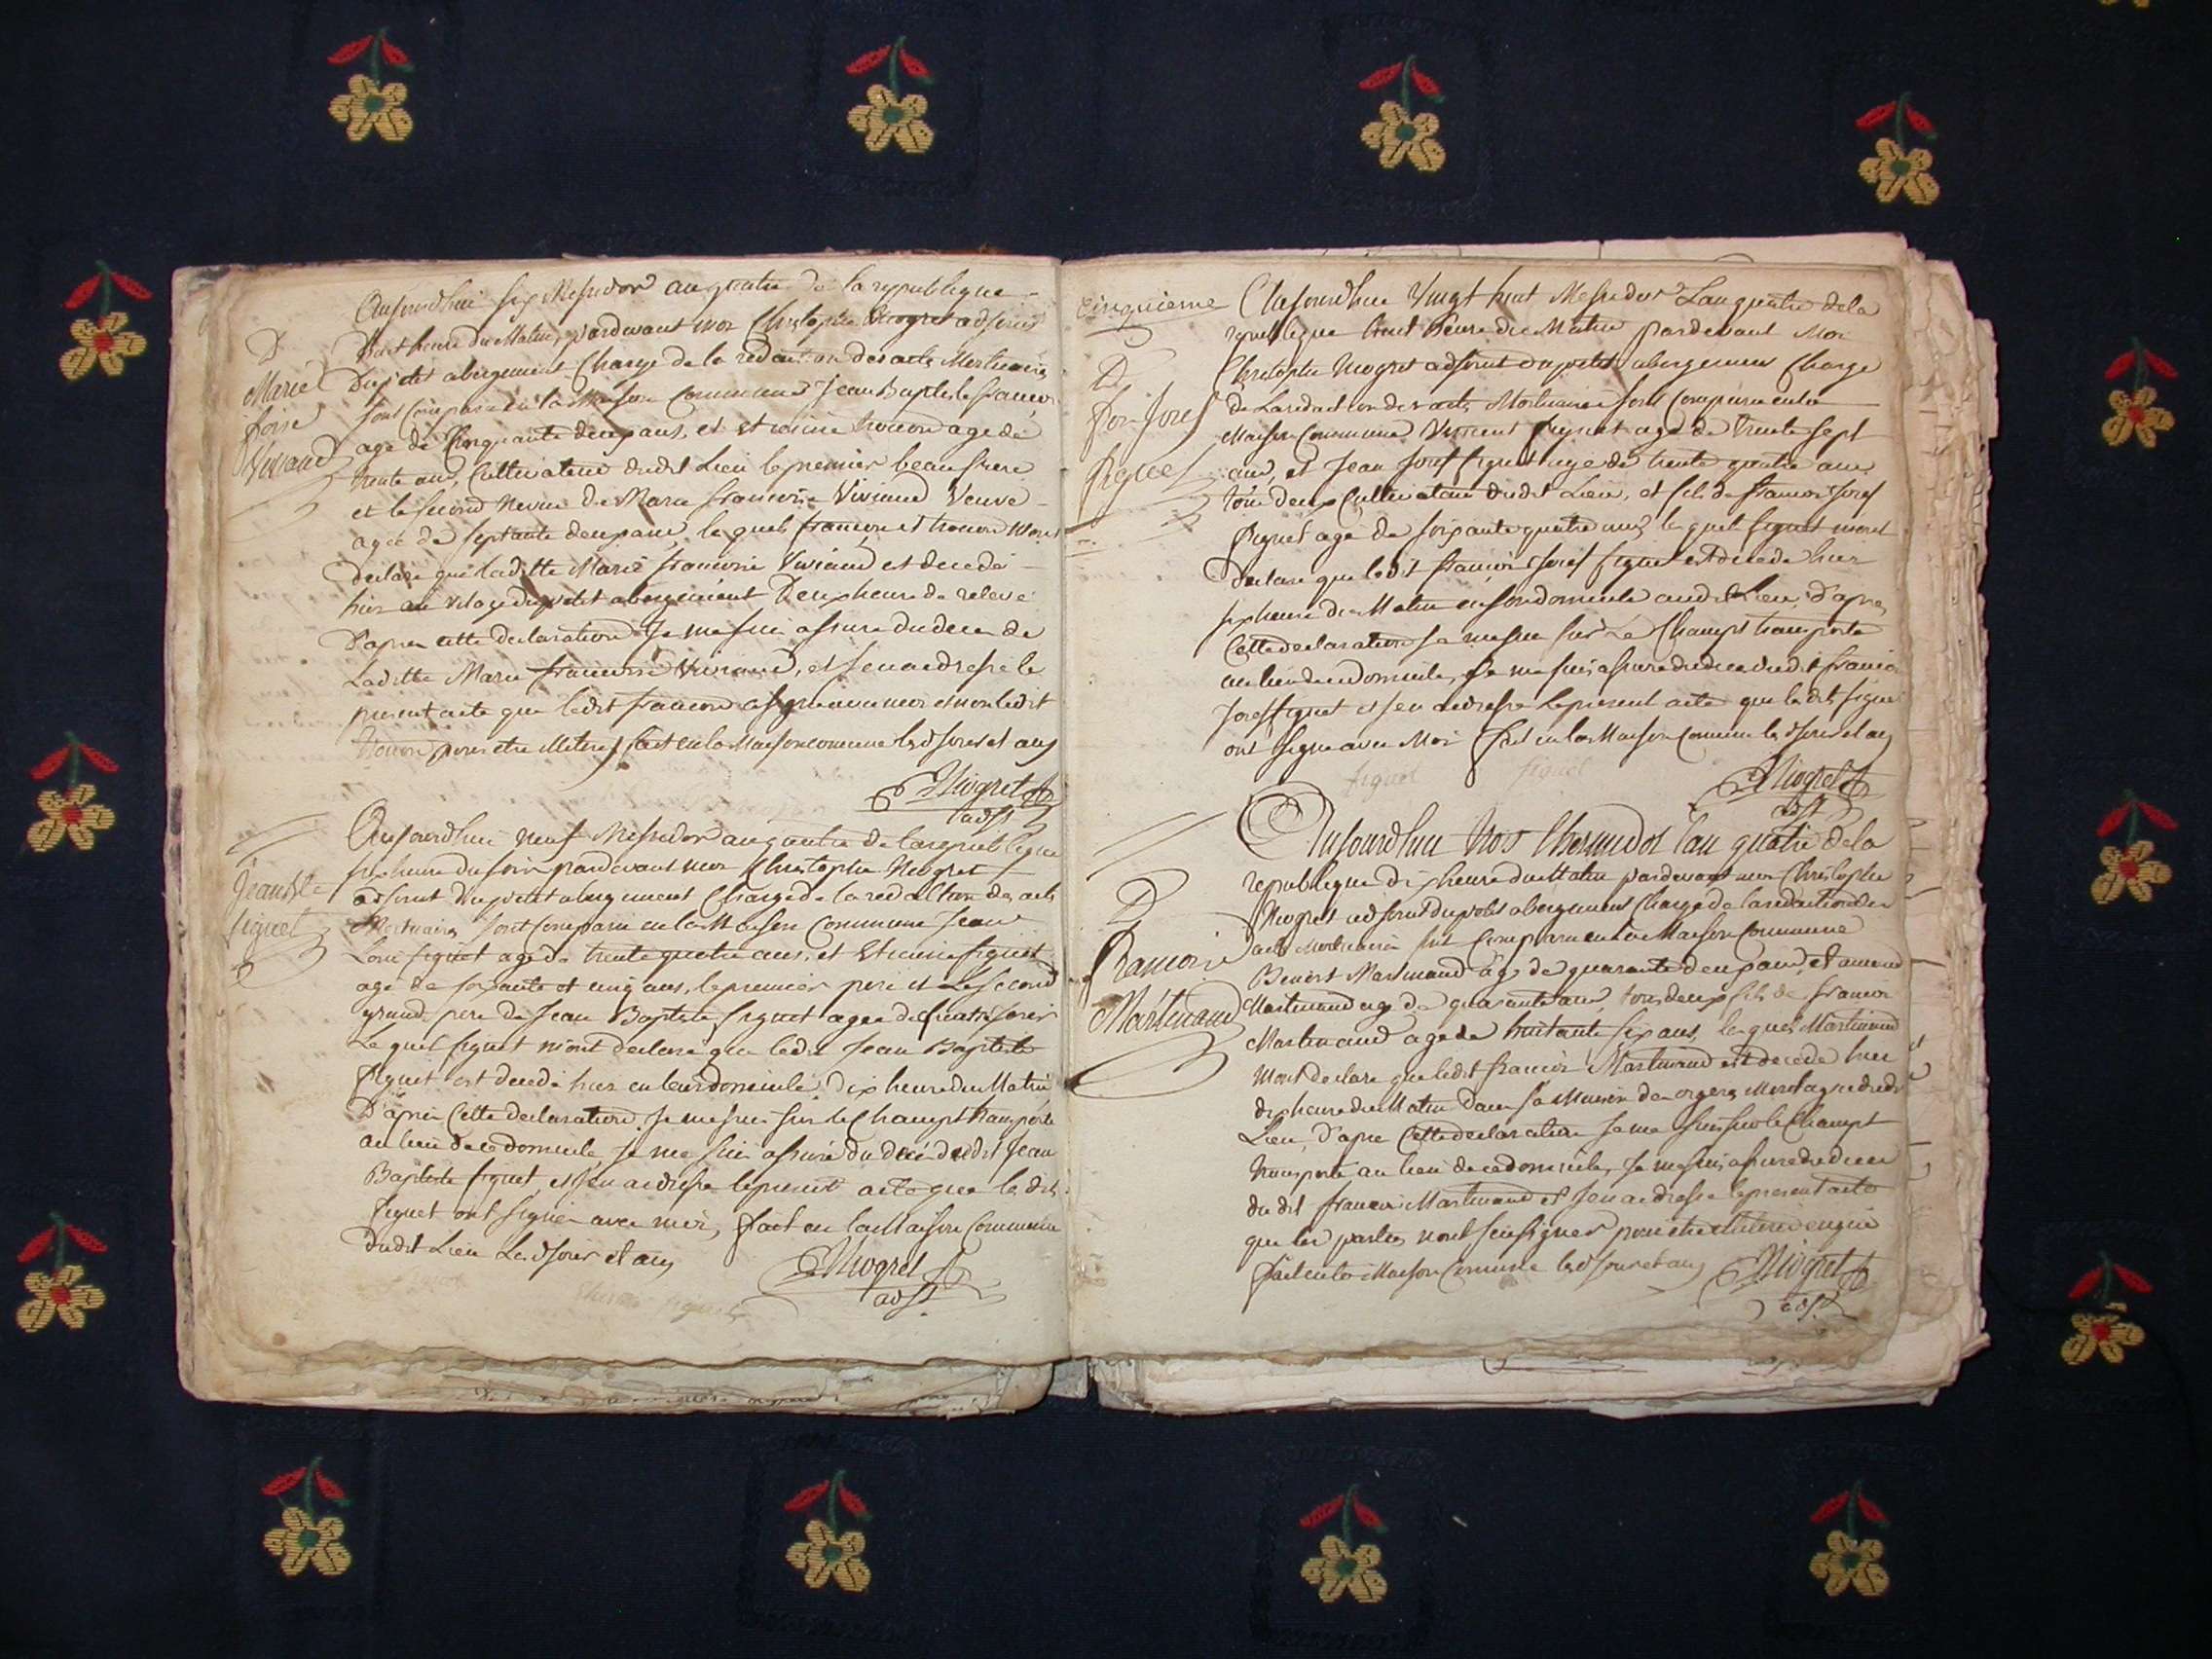 Aujourdhui six Messidor an quatre de la republique
D
Marie
foise
Viviand
huit heure du Matin, pardevant moi Christophe Niogret adjoint
Du petit abergement Charge de la redaction des acts Mortuaires
sont Comparu en la Maison Commune Jean Baptiste francon
age de Cinquante deux ans, et Etienne
trente ans, Cultivateur dudit Lieu le premier beau frere
et le second neveu de Marie francoise Viviand Veuve
agée de septante deux ans, lequels francon et mont
declare que laditte Marie francoise Viviand et decedé
hier au vilage du petit abergement Deux heure de relevé
D'apres cette declaration Je me suis assure du deces de
Laditte Marie francoise Viviand, et J'en ai dressé le
present acte que ledit francon a signe avec moi et non ledit
pour etre illiteré fait en la Maison comune les Jour et an
Niogret
adjt
Jean Bte
figuet
Aujourdhui neuf Messidor an quatre de la republique
six heure du soir pardevant moi Christophe Niogret
adjoint du petit abergement Charge de la redaction des acts
Mortuaires sont Comparu en la Maison Commune Jean
Loui figuet age de trente quatre ans, et Etienne figuet
age de soixante et cinq ans, le premier pere et Le second
grand pere de Jean Baptiste figuet agee de quatre Jours
Le quel figuet mont declaré que ledit Jean Baptiste
figuet est decedé hier en leur domicile, dix heure du Matin
D'apres Cette declaration, Je me suis sur le Champt transporte
au lieu de ce domicile, Je me suis assuré du décés dudit Jean
Baptiste figuet, et J'en ai dresse le present acte que les dits
figuet ont signer avec moi, fait en la Maison Commune
dudit Lieu Les Jour et an
Niogret
adjt
figuet
cinquieme
D
fois Josef
figuet
Aujourdhui Vingt huit Messidor L'an quatre de la
republique huit heure du Matin pardevant Moi
Christophe Niogret adjoint du petit abergement Charge
de La redaction des acts Mortuaire sont Comparu en la
Maison Commune Vincent figuet age de trente sept
ans, et Jean Josef figuet age de trente quatre ans
tous deux Cultivateur dudit Lieu, et fils de francois Josef
figuet age de soixante quatre ans, le quel figuet mont
Declare que ledit francois Josef figuet est decede hier
six heure du Matin en son domicile audit Lieu, D'apres
Cette declaration Je me suis sur Le Champt transporte
au lieu de ce domicile, Je me suis assure du deces dudit francois
Josef figuet et J'en ai dresse le present acte que les dits figuet
ont signe avec Moi fait en la Maison Comune les Jour et an
figuet figuet
Niogret
adjt
D
francois
Martinand
Aujourdhui trois thermidor l'an quatre de la
republique dix heure du Matin pardevant moi Christophe
Niogret adjoint du petit abergement Charge de la redaction des
acts Mortuaire sont Comparu en la Maison Commune
Benoit Martinand age de quarante deux ans, et
Martinand age de quarante ans, tous deux fils de francois
Martinand age de huitante six ans, les quels Martinand
mont declare que ledit francois Martinand est decede hier
dix heure du Matin dans sa Maison Montagne dudit
Lieu, D'apres Cette declaration Je me suis sur le Champt
transporte au lieu de ce domicile, Je me suis assure du deces
du dit francois Martinand et J'en ai dresse le present acte
que les parties nont seu signer pour etre
fait en la Maison Comune les Jour et an
Niogret
adjt